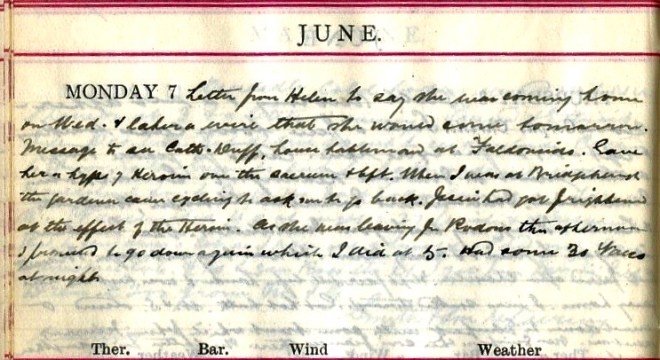 JUNE.
MONDAY 7 Letter from Helen to say she was coming home
on Wed. & later a wire that she would come tomorrow.
Message to see Cath. Duff, house tablemaid at. Gave
her a hype of Heroin over the sacrum & left. When I was at
the gardener came cycling to ask me to go back. Jessie had got frightened
at the effect of the Heroin. As she was leaving for this afternoon
I promised to go down again which I did at 5. Had some 30
at night.
Ther. Bar. Wind Weather